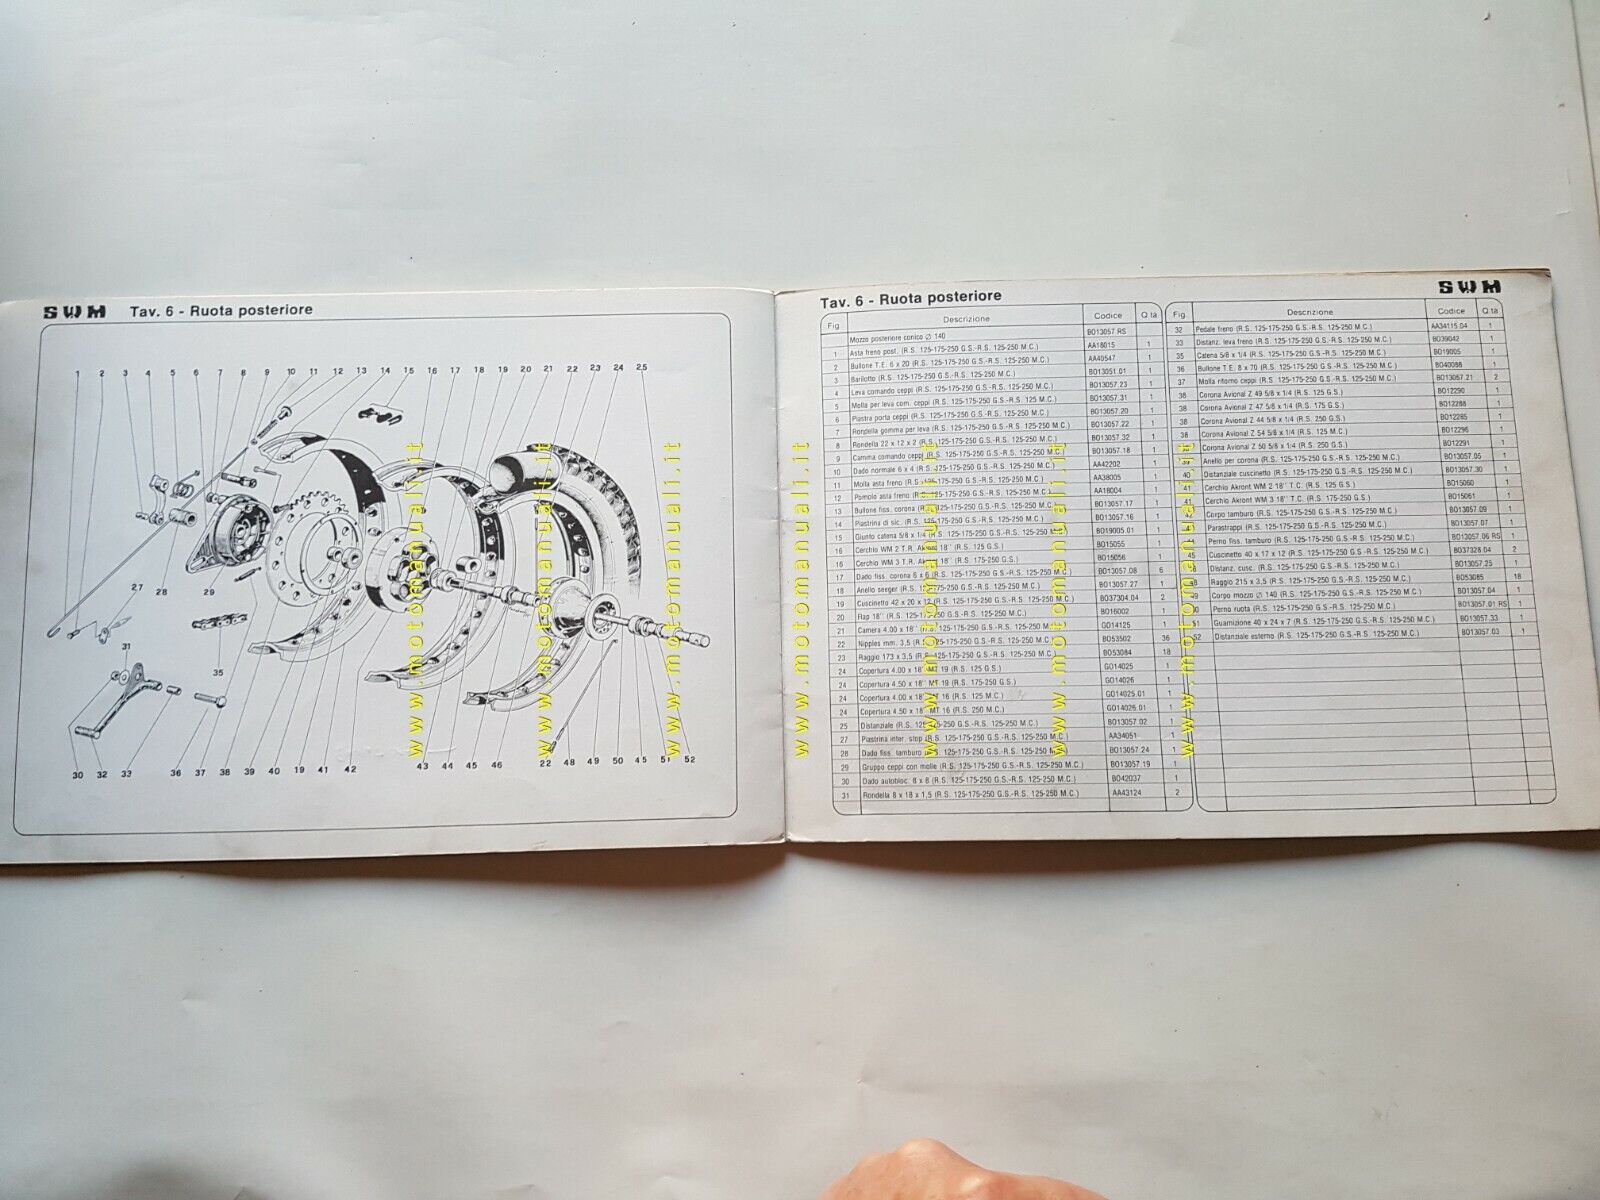 SWM Tav. 6 - Ruota posteriore
1 2 3 4 5 6 7 8 9 10 11 12 13 14 15 16 17 18 19 20 21 22 23 24 25
27 28 29
31
35
30 32 33 36 37 38 39 40 19 41 42 43 44 45 46 22 48 49 50 45 51 52
www.motomanuali.it
www.motomanuali.it
www.motomanuali.it
Tav. 6 - Ruota posteriore
SWM
Fig. Descrizione Codice Q.tà
Mozzo posteriore conico ∅ 140 BO13057 RS
1 Asta freno post. (R.S. 125-175-250 G.S.-R.S. 125-250 M.C.) AA18015 1
2 Bullone T.E. 6 x 20 (R.S. 125-175-250 G.S.-R.S. 125-250 M.C.) AA40547 1
3 Barilotto (R.S. 125-175-250 G.S.-R.S. 125-250 M.C.) BO13051.01 1
4 Leva comando ceppi (R.S. 125-175-250 G.S.-R.S. 125-250 M.C.) BO13057.23 1
5 Molla per leva com. ceppi (R.S. 125-175-250 G.S.-R.S. 125 M.C.) BO13057.31 1
6 Piastra porta ceppi (R.S. 125-175-250 G.S.-R.S. 125-250 M.C.) BO13057.20 1
7 Rondella gomma per leva (R.S. 125-175-250 G.S.-R.S. 125-250 M.C.) BO13057.22 1
8 Rondella 22 x 12 x 2 (R.S. 125-175-250 G.S.-R.S. 125-250 M.C.) BO13057.32 1
9 Camma comando ceppi (R.S. 125-175-250 G.S.-R.S. 125-250 M.C.) BO13057.18 1
10 Dado normale 6 x 4 (R.S. 125-175-250 G.S.-R.S. 125-250 M.C.) AA42202 1
11 Molla asta freno (R.S. 125-175-250 G.S.-R.S. 125-250 M.C.) AA38005 1
12 Pomolo asta freno (R.S. 125-175-250 G.S.-R.S. 125-250 M.C.) AA18004 1
13 Bullone fiss. corona (R.S. 125-175-250 G.S.-R.S. 125-250 M.C.) BO13057.17
14 Piastrina di sic. (R.S. 125-175-250 G.S.-R.S. 125-250 M.C.) BO13057.16
15 Giunto catena 5/8 x 1/4 (R.S. 125-175-250 G.S.-R.S. 125-250 M.C.) BO19005.01 1
16 Cerchio WM 2 T.R. Akront 18'' (R.S. 125 G.S.) BO15055 1
16 Cerchio WM 3 T.R. Akront 18'' (R.S. 175-250 G.S.) BO15056 1
17 Dado fiss. corona 6 x 6 (R.S. 125-175-250 G.S.-R.S. 125-250 M.C.) BO13057.08 6
18 Anello seeger (R.S. 125-175-250 G.S.-R.S. 125-250 M.C.) BO13057.27 1
19 Cuscinetto 42 x 20 x 12 (R.S. 125-175-250 G.S.-R.S. 125-250 M.C.) BO37304.04 2
20 Flap 18'' (R.S. 125-175-250 G.S.-R.S. 125-250 M.C.) BO16002 1
21 Camera 4.00 x 18'' (R.S. 125-175-250 G.S.-R.S. 125-250 M.C.) GO14125 1
22 Nipples mm. 3,5 (R.S. 125-175-250 G.S.-R.S. 125-250 M.C.) BO53502 36
23 Raggio 173 x 3,5 (R.S. 125-175-250 G.S.-R.S. 125-250 M.C.) BO53084 18
24 Copertura 4.00 x 18'' MT 19 (R.S. 125 G.S.) GO14025 1
24 Copertura 4.50 x 18'' MT 19 (R.S. 175-250 G.S.) GO14026 1
24 Copertura 4.00 x 18'' MT 16 (R.S. 125 M.C.) GO14025.01 1
24 Copertura 4.50 x 18'' MT 16 (R.S. 250 M.C.) GO14026.01 1
25 Distanziale (R.S. 125-175-250 G.S.-R.S. 125-250 M.C.) BO13057.02 1
27 Piastrina inter. stop (R.S. 125-175-250 G.S.-R.S. 125-250 M.C.) AA34051 1
28 Dado fiss. tamburo (R.S. 125-175-250 G.S.-R.S. 125-250 M.C.) BO13057.24 1
29 Gruppo ceppi con molle (R.S. 125-175-250 G.S.-R.S. 125-250 M.C.) BO13057.19 1
30 Dado autobloc. 8 x 8 (R.S. 125-175-250 G.S.-R.S. 125-250 M.C.) BO42037 1
31 Rondella 8 x 18 x 1,5 (R.S. 125-175-250 G.S.-R.S. 125-250 M.C.) AA43124 2
Fig. Descrizione Codice Q.tà
32 Pedale freno (R.S. 125-175-250 G.S.-R.S. 125-250 M.C.) AA34115.04 1
33 Distanz. leva freno (R.S. 125-175-250 G.S.-R.S. 125-250 M.C.) BO39042 1
35 Catena 5/8 x 1/4 (R.S. 125-175-250 G.S.-R.S. 125-250 M.C.) BO19005 1
36 Bullone T.E. 8 x 70 (R.S. 125-175-250 G.S.-R.S. 125-250 M.C.) BO40088 1
37 Molla ritorno ceppi (R.S. 125-175-250 G.S.-R.S. 125-250 M.C.) BO13057.21 2
38 Corona Avional Z 49 5/8 x 1/4 (R.S. 125 G.S.) BO12290 1
38 Corona Avional Z 47 5/8 x 1/4 (R.S. 175 G.S.) BO12288 1
38 Corona Avional Z 44 5/8 x 1/4 (R.S. 250 G.S.) BO12285 1
38 Corona Avional Z 54 5/8 x 1/4 (R.S. 125 M.C.) BO12295 1
Corona Avional Z 50 5/8 x 1/4 (R.S. 250 M.C.) BO12291 1
39 Anello per corona (R.S. 125-175-250 G.S.-R.S. 125-250 M.C.) BO13057.05 1
40 Distanziale cuscinetto (R.S. 125-175-250 G.S.-R.S. 125-250 M.C.) BO13057.30 1
41 Cerchio Akront WM 2 18'' T.C. (R.S. 125 G.S.) BO15060 1
41 Cerchio Akront WM 3 18'' T.C. (R.S. 175-250 G.S.) BO15061 1
Corpo tamburo (R.S. 125-175-250 G.S.-R.S. 125-250 M.C.) BO13057.09 1
Parastrappi (R.S. 125-175-250 G.S.-R.S. 125-250 M.C.) BO13057.07 1
44 Perno fiss. tamburo (R.S. 125-175-250 G.S.-R.S. 125-250 M.C.) BO13057.06 RS 1
45 Cuscinetto 40 x 17 x 12 (R.S. 125-175-250 G.S.-R.S. 125-250 M.C.) BO37328.04 2
Distanz. cusc. (R.S. 125-175-250 G.S.-R.S. 125-250 M.C.) BO13057.25 1
48 Raggio 215 x 3,5 (R.S. 125-175-250 G.S.-R.S. 125-250 M.C.) BO53085 18
49 Corpo mozzo ∅ 140 (R.S. 125-175-250 G.S.-R.S. 125-250 M.C.) BO13057.04 1
50 Perno ruota (R.S. 125-175-250 G.S.-R.S. 125-250 M.C.) BO13057.01 RS 1
51 Guarnizione 40 x 24 x 7 (R.S. 125-175-250 G.S.-R.S. 125-250 M.C.) BO13057.33 1
52 Distanziale esterno (R.S. 125-175-250 G.S.-R.S. 125-250 M.C.) BO13057.03 1
www.motomanuali.it
www.motomanuali.it
www.motomanuali.it
www.motomanuali.it